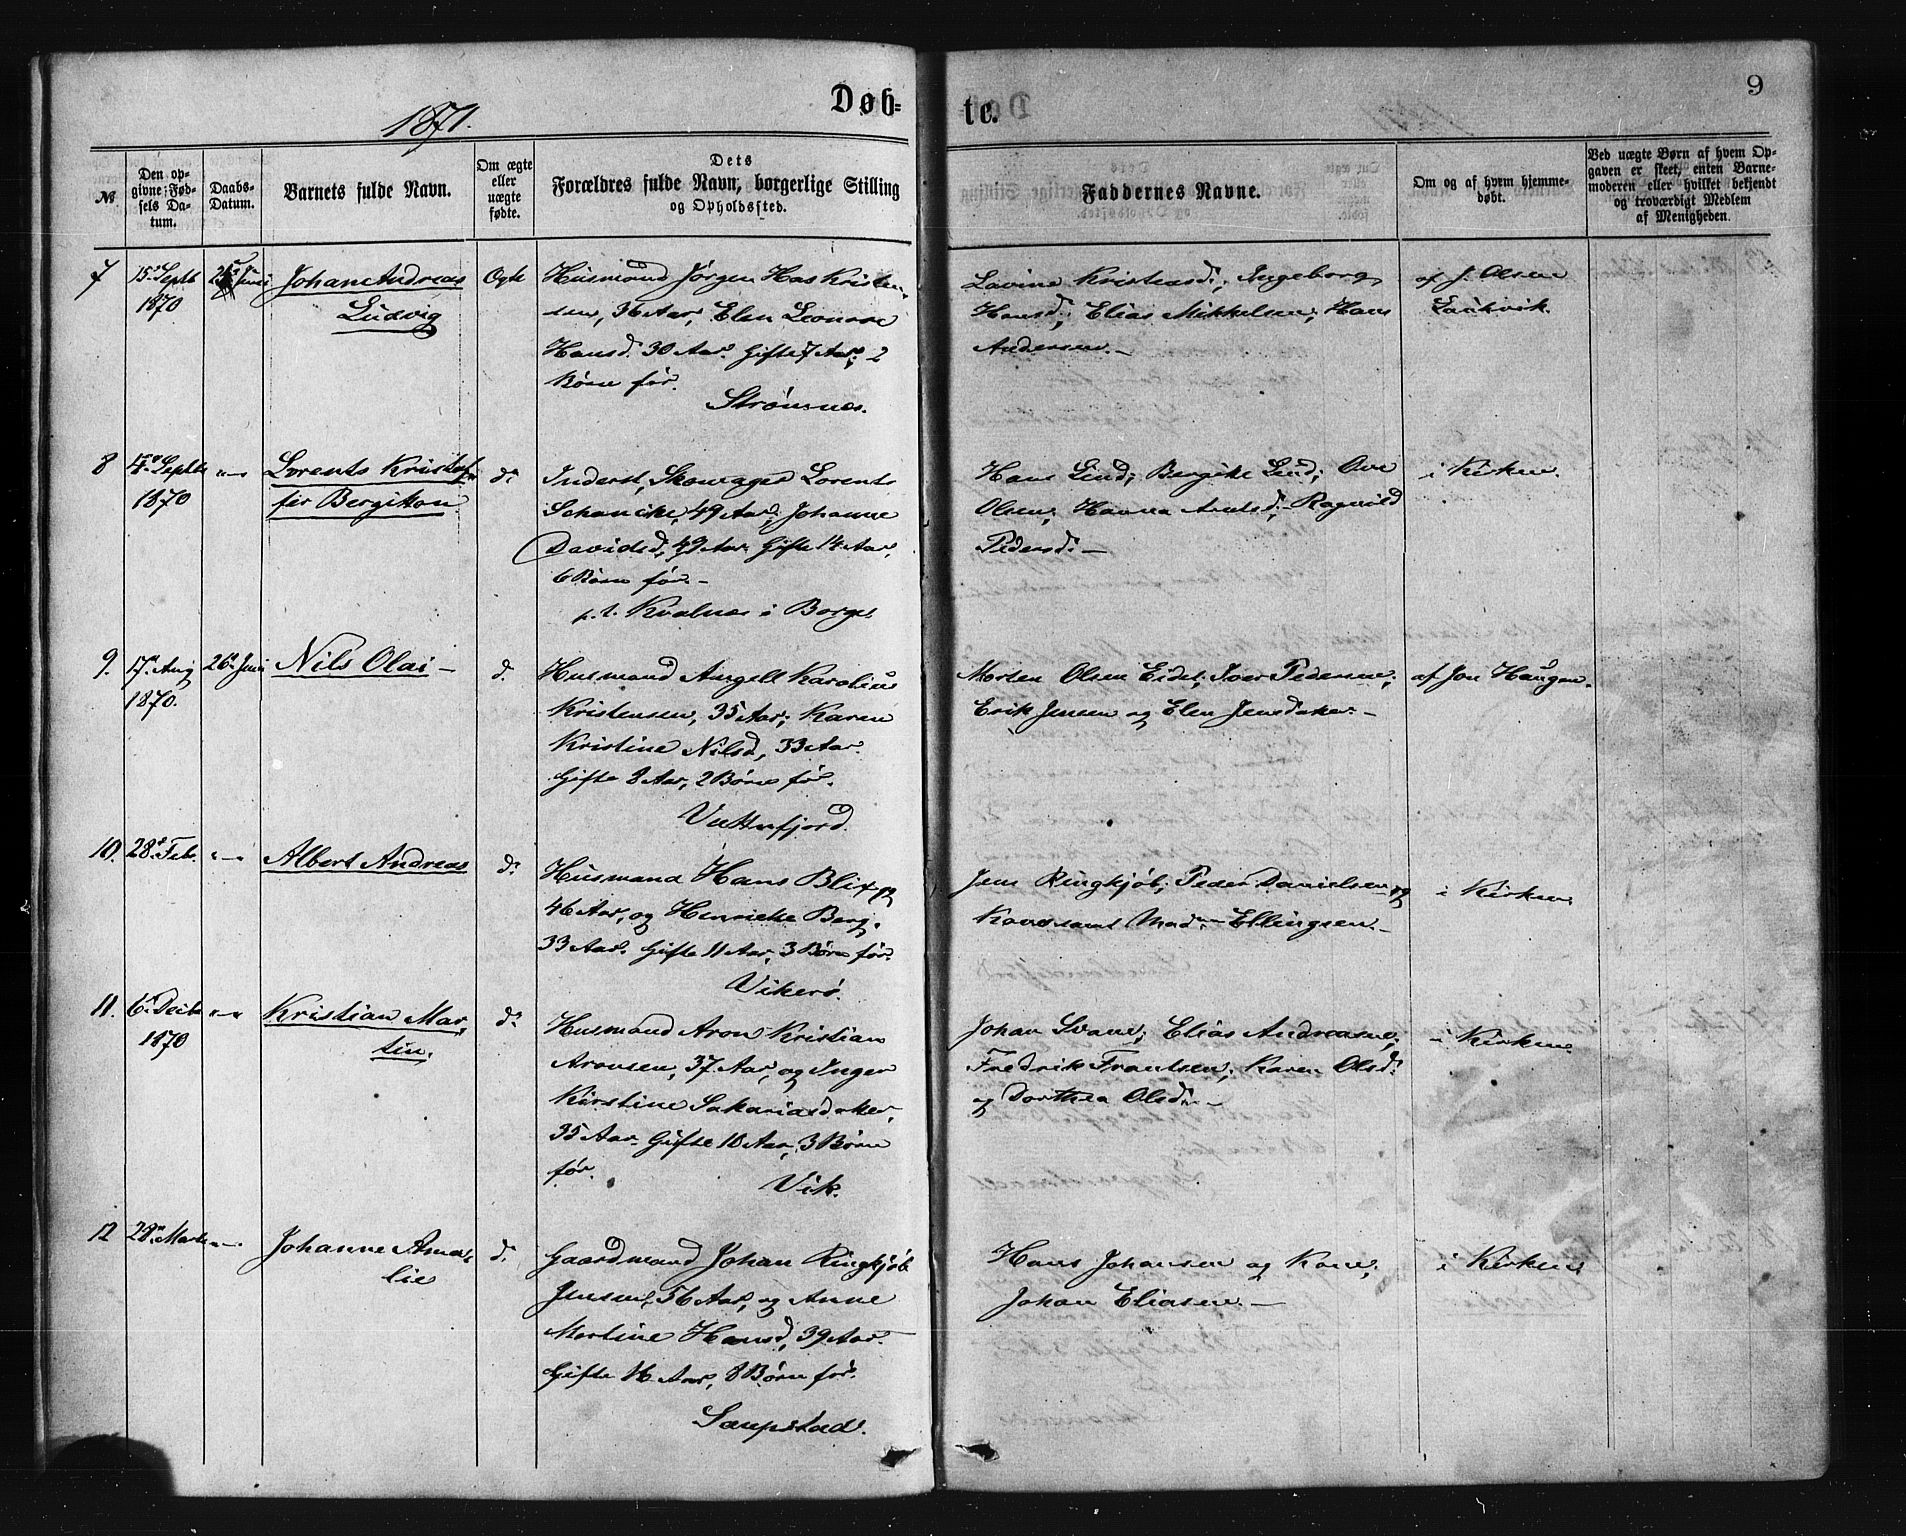 Døb-
te.
9
1871.
№
Den op-
givne Fød-
sels Da-
tum.
Daabs-
Datum.
Barnets fulde Navn.
Om ægte
eller
uægte
fødte.
Dets
Forældres fulde Navn, borgerlige Stilling
og Opholdssted.
Faddernes Navne.
Om og af hvem hjemme-
døbt.
Ved uægte Børn af hvem Op-
gaven er skeet, enten Barne-
moderen eller hvilket bekjendt
og troværdigt Medlem
af Menigheden.
7
15de Septb
1870
25 Juni
Johan Andreas
Ludvig
Ægte
Husmand Jørgen Has Kristen-
sen, 36 Aar, Elen Leonore
Hansd. 30 Aar. Gifte 7 Aar, 2
Børn før.
Strømnes.
Lavine Kristensd; Ingeborg
Hansd; Elias Mikkelsen; Hans
Andersen.—
af J. Olsen
Laukvik.
8
4de Septb
1870
"—"
Lorents Kristof-
fer Bergiton
do
Inderst, Skomager Lorents
Schancke, 49 Aar; Johanne
Davidsd, 49 Aar. Gifte 14 Aar,
6 Børn før.—
p. t. Kvalnes i Borge
Hans Lind; Bergite Lind; Ove
Olsen; Hanna Arntsd; Ragnild
Pedersd.—
i Kirken.
9.
17de Aug
1870.
26de Juni
Nils Olai—
do
Husmand Angell Karolius
Kristensen, 35 Aar; Karen
Kristine Nilsd, 33 Aar.
Gifte 8 Aar, 2 Børn før.
Vuttufjord.
Morten Olsen Eidet; Iver Pedersen;
Erik Jensen og Elen Jensdater.—
af Jon Haugen.
10.
28de Feb.
"—"
Albert Andreas
do
Husmand Hans Blix,
46 Aar, og Henrikke Berg,
33 Aar. Gifte 11 Aar, 3 Børn før.
Vikerø.
Jens Ringkjøb; Peder Danielsen og
Kone samt Mad. Ellingsen.—
i Kirken
11.
6te Decb
1870
"—"
Kristian Mar-
tin.
do
Husmand Aron Kristian
Aronsen, 37 Aar, og Inger
Kirstine Sakariasdater,
35 Aar. Gifte 10 Aar, 3 Børn
før.
Vik.
Johan Svane; Elias Andreasen;
Fredrik Frantsen; Karen Olsd.
og Dorthea Olsd.—
i Kirken
12
28de Marts
"—"
Johanne Ama-
lie
do
Gaardmand Johan Ringkjøb
Jensen, 56 Aar, og Anne
Martine Hansd, 39 Aar.
Gifte 16 Aar, 8 Børn før.
Saupstad.
Hans Johansen og Kone;
Johan Eliasen.—
i Kirken